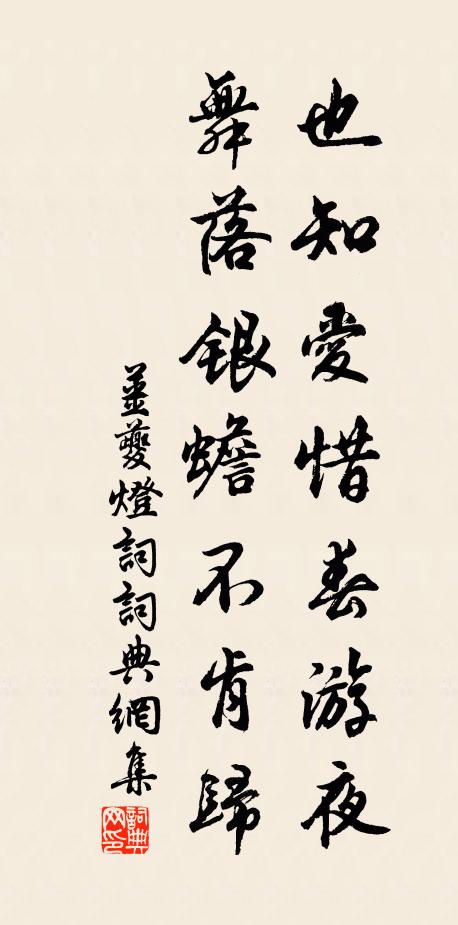 也知愛惜春游夜
舞落銀蟾不肯歸
姜夔燈詞詞典網集
詞典網印